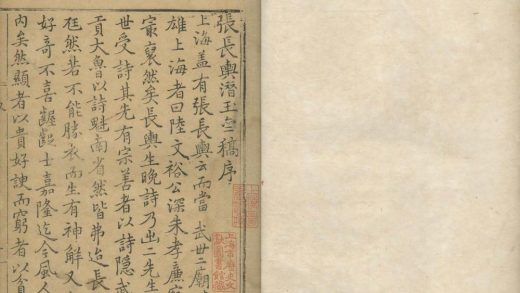 張長輿潛玉亝稿序
上海盖有張長輿云而當 武世二廟
雄上海者曰陸文裕公深朱孝廉
㝡裒然矣長輿生晚詩乃出二先生
世受詩其先有宗善者以詩隱武
貢大魯以詩魁南省然皆弗迨長
尫然若不能勝衣而生有神解又
好奇不喜齷齪士嘉隆迄今風人
內矣然顯者以貴好諛而窮者以貧
上海市歷史文
獻圖書館藏